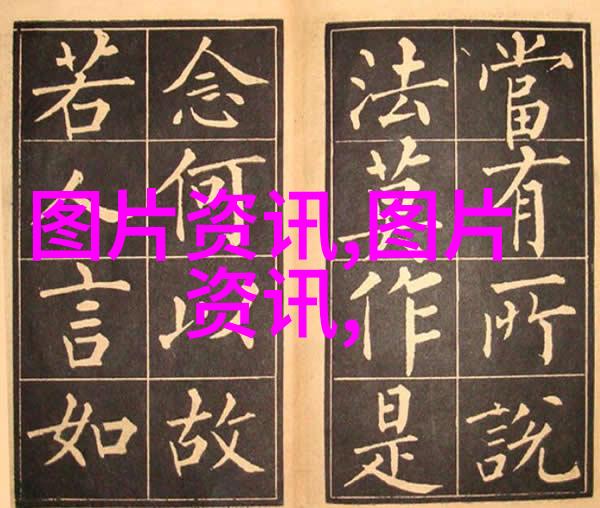 當有所說
法莫作是
念何以故
若人言如
图片资讯,图片
资讯,